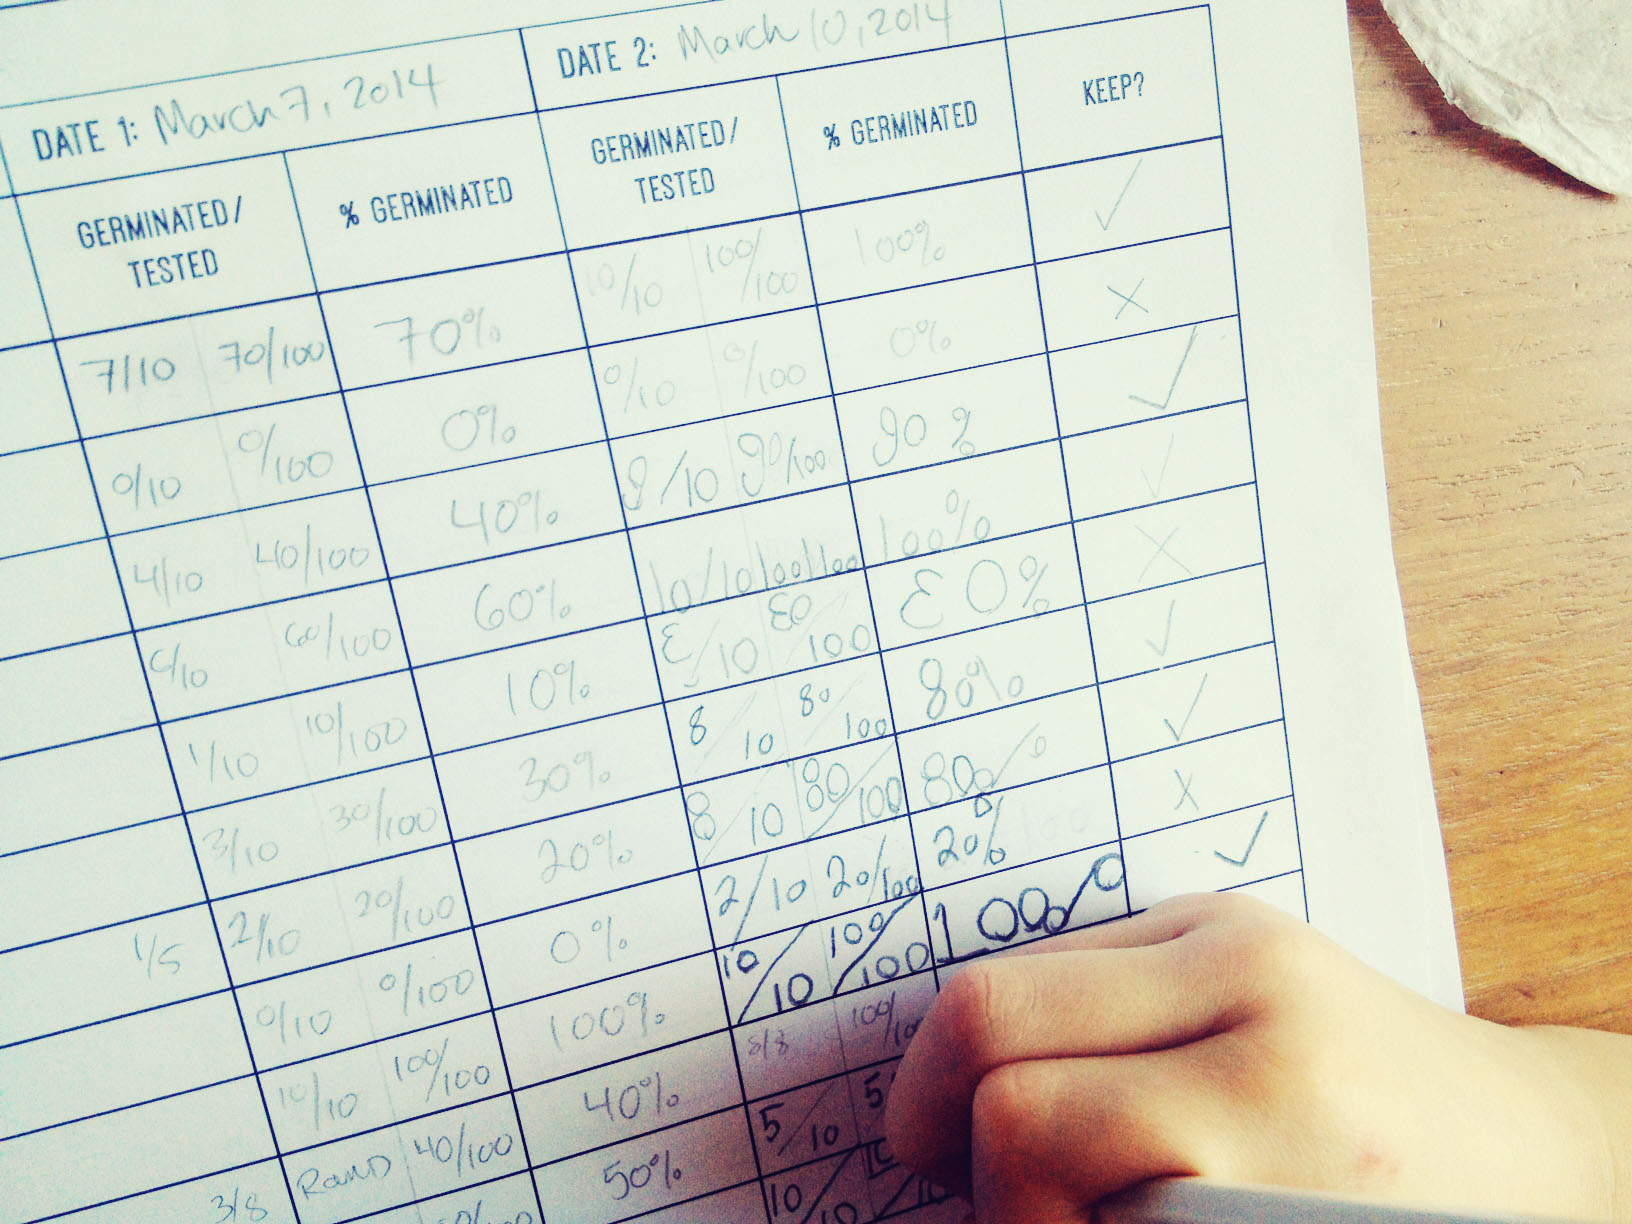 DATE 1: March 7, 2014 DATE 2: March 10, 2014
GERMINATED/ TESTED % GERMINATED GERMINATED/ TESTED % GERMINATED KEEP?
7/10 70/100 70% 10/10 100/100 100% ✓
0/10 0/100 0% 0/10 0/100 0% X
4/10 40/100 40% 9/10 90/100 90% ✓
6/10 60/100 60% 10/10 100/100 100% ✓
1/10 10/100 10% 3/10 30/100 30% X
3/10 30/100 30% 8/10 80/100 80% ✓
1/5 2/10 20/100 20% 8/10 80/100 80% ✓
0/10 0/100 0% 2/10 20/100 20% X
10/10 100/100 100% 10/10 100/100 100% ✓
3/8 ROUND 40/100 40% 8/8
50% 5/10
10/10